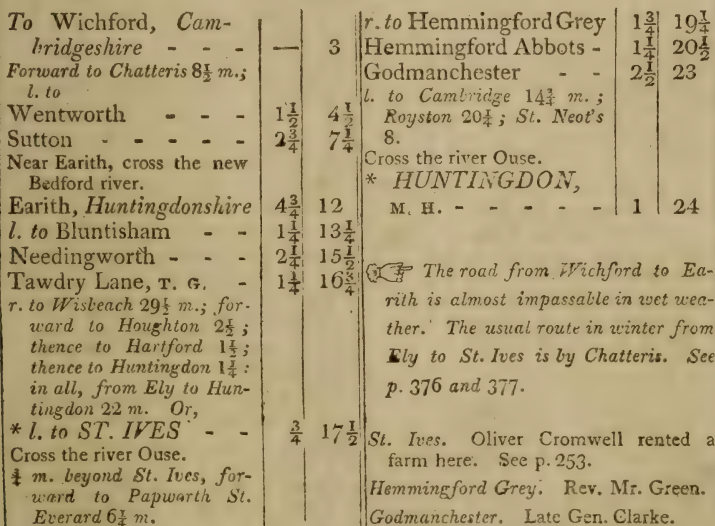 To Wichford, Cam-
bridgeshire - - - — 3
Forward to Chatteris 8½ m.;
l. to
Wentworth - - - 1½ 4½
Sutton - - - - - 2¾ 7¼
Near Earith, cross the new
Bedford river.
Earith, Huntingdonshire 4¾ 12
l. to Bluntisham - - 1¼ 13¼
Needingworth - - - 2¼ 15½
Tawdry Lane, T. G. - 1¼ 16¾
r. to Wisbeach 29½ m.; for-
ward to Houghton 2½;
thence to Hartford 1½;
thence to Huntingdon 1¼:
in all, from Ely to Hun-
tingdon 22 m. Or,
* l. to ST. IVES - - ¾ 17½
Cross the river Ouse.
¼ m. beyond St. Ives, for-
ward to Papworth St.
Everard 6½ m.
r. to Hemmingford Grey 1¾ 19¼
Hemmingford Abbots - 1¼ 20½
Godmanchester - - 2½ 23
l. to Cambridge 14¾ m.;
Royston 20¼; St. Neot's
8.
Cross the river Ouse.
* HUNTINGDON,
M. H. - - - - - 1 24
☞ The road from Wichford to Ea-
rith is almost impassable in wet wea-
ther. The usual route in winter from
Ely to St. Ives is by Chatteris. See
p. 376 and 377.
St. Ives. Oliver Cromwell rented a
farm here. See p. 253.
Hemmingford Grey. Rev. Mr. Green.
Godmanchester. Late Gen. Clarke.